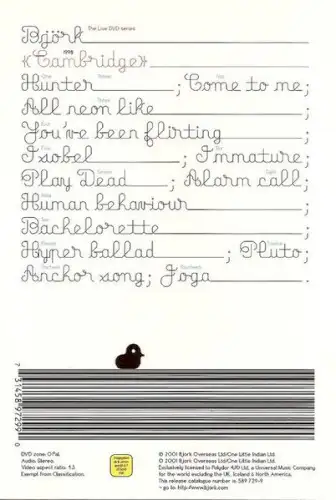 Björk The Live DVD series
«Cambridge» 1998
Hunter ; Come to me;
All neon like ;
You've been flirting ;
Isobel ; Immature;
Play Dead ; Alarm call;
Human behaviour ;
Bachelorette ;
Hyper ballad ; Pluto;
Anchor song; Joga
7 31458 97299 0
DVD zone: 0 Pal.
Audio: Stereo.
Video aspect ratio: 4:3.
Exempt from Classification.
℗ 2001 Björk Overseas Ltd/One Little Indian Ltd.
© 2001 Björk Overseas Ltd/One Little Indian Ltd.
Exclusively licensed to Polydor (UK) Ltd, a Universal Music Company
for the world excluding the UK, Iceland & North America.
This release catalogue number is 589 729-9
- go to: http://www.bjork.com